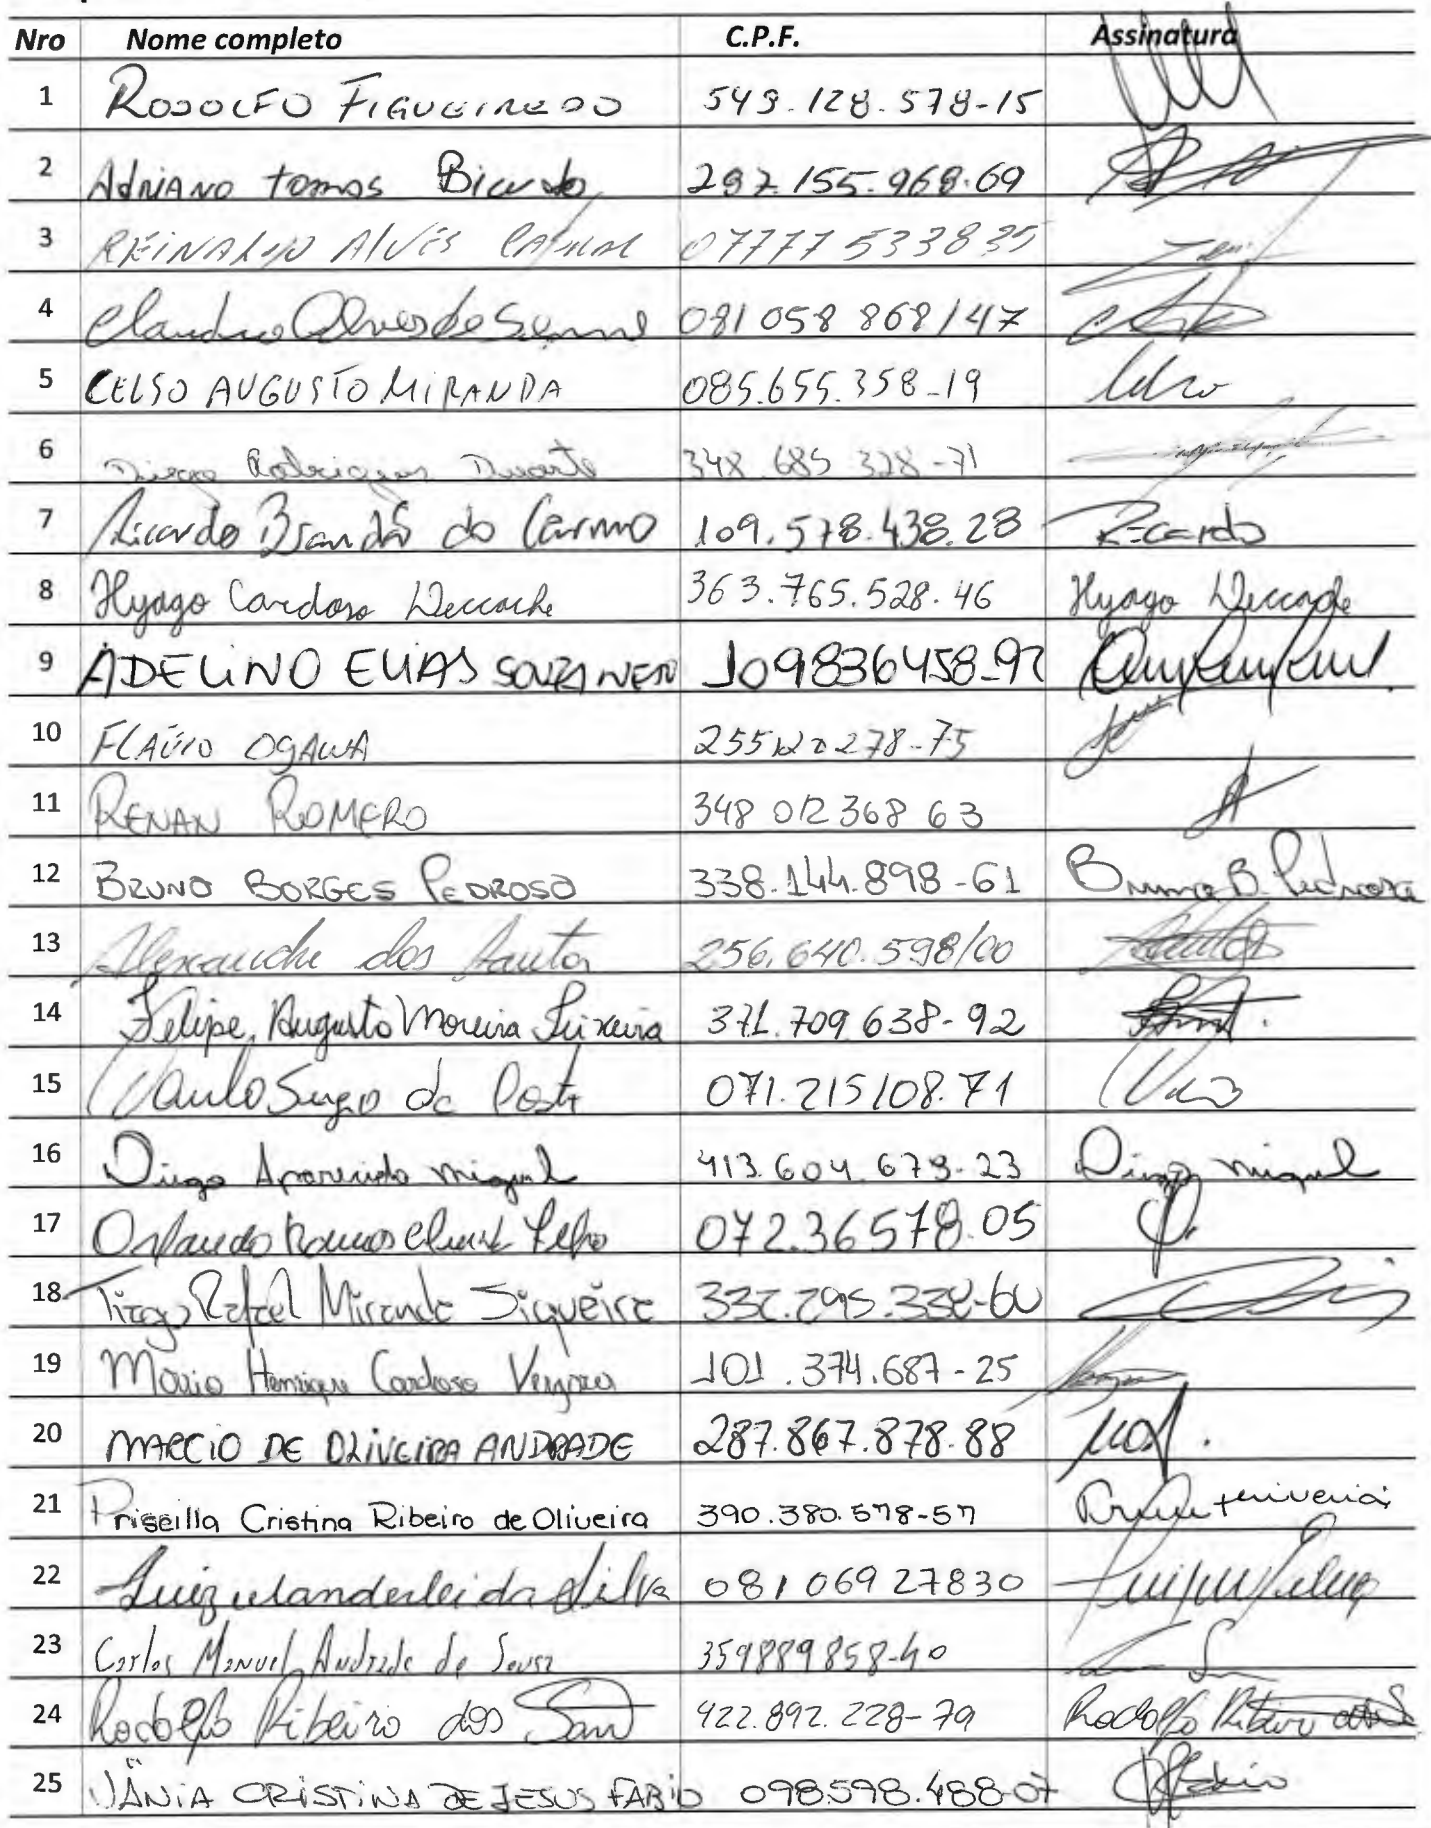 Nro Nome completo C.P.F. Assinatura
1 RODOLFO FIGUEIREDO 549.128.578-15
2 Adriano tomas 297.155.968.69
3 REINALDO ALVES 07777533835
4 Claudio Alves de 081 058 868/47
5 CELSO AUGUSTO MIRANDA 085.655.358-19 Celso
6 Diego Rodrigues Duarte 348 685 328-71
7 Ricardo Brandão do Carmo 109.578.438.28 Ricardo
8 Hyago Cardoso Deccache 363.765.528.46 Hyago Deccache
9 ADELINO ELIAS SOUZA NETO 109836458-97
10 FLÁVIO OGAWA 278-75
11 RENAN ROMERO 348 012 368 63
12 BRUNO BORGES PEDROSO 338.144.898-61 Bruno B. Pedroso
13 Alexandre dos Santos 256.640.598/00
14 Felipe Augusto Moreira Teixeira 371.709 638-92
15 Paulo Sergio da Costa 071.215108.71
16 Diego Aparecido Miguel 413.604.679-23 Diego Miguel
17 Orlando Ramos Filho 072.36578.05
18 Tiago Rafael Miranda Siqueira 332.295.338-60
19 Mário Henrique Cardoso 101.374.687-25
20 MARCIO DE OLIVEIRA ANDRADE 287.867.878.88
21 Priscilla Cristina Ribeiro de Oliveira 390.380.578-57
22 Luiz wlanderlei da Silva 081 069 27830
23 Carlos Manuel Andrade de Sousa 359889858-40
24 Rodolfo Ribeiro dos Sant 422.892.228-79 Rodolfo Ribeiro
25 VÂNIA CRISTINA DE JESUS FABIO 098598.488-07